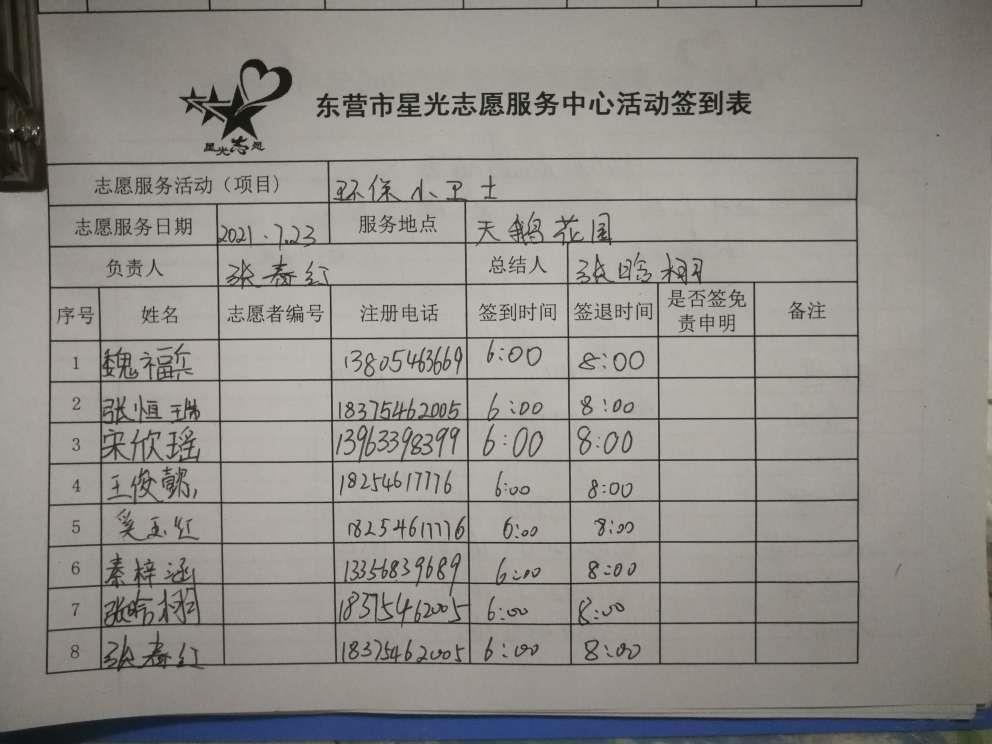 星光志愿
东营市星光志愿服务中心活动签到表
志愿服务活动（项目） 环保小卫士
志愿服务日期 2021.7.23 服务地点 天鹅花园
负责人 张春红 总结人 张晗栩
序号 姓名 志愿者编号 注册电话 签到时间 签退时间 是否签免责申明 备注
1 魏福兵 13805463669 6:00 8:00
2 张恒瑞 18375462005 6:00 8:00
3 宋欣瑶 13963398399 6:00 8:00
4 王俊懿 18254617776 6:00 8:00
5 奚玉红 18254617776 6:00 8:00
6 秦梓涵 13356839689 6:00 8:00
7 张晗栩 18375462005 6:00 8:00
8 张春红 18375462005 6:00 8:00